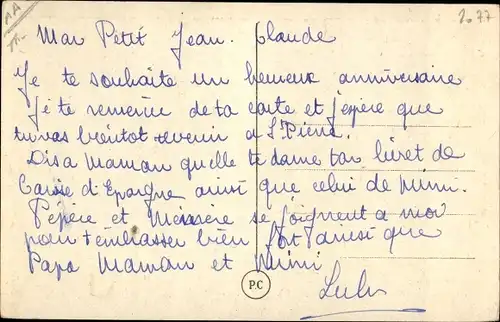 2077
AA
Mon Petit Jean. Claude
Je te souhaite un heureux anniversaire
Je te remercie de ta carte et j'espère que
tu vas bientot revenir a St Pierre.
Dis a Maman quelle te dame ton livret de
Caisse d'Epargne ainsi que celui de Mimi.
Pépère et Mémère se joignent a moi
pour t'embrasser bien fort ainsi que
Papa Maman et Mimi
Lulu
P.C